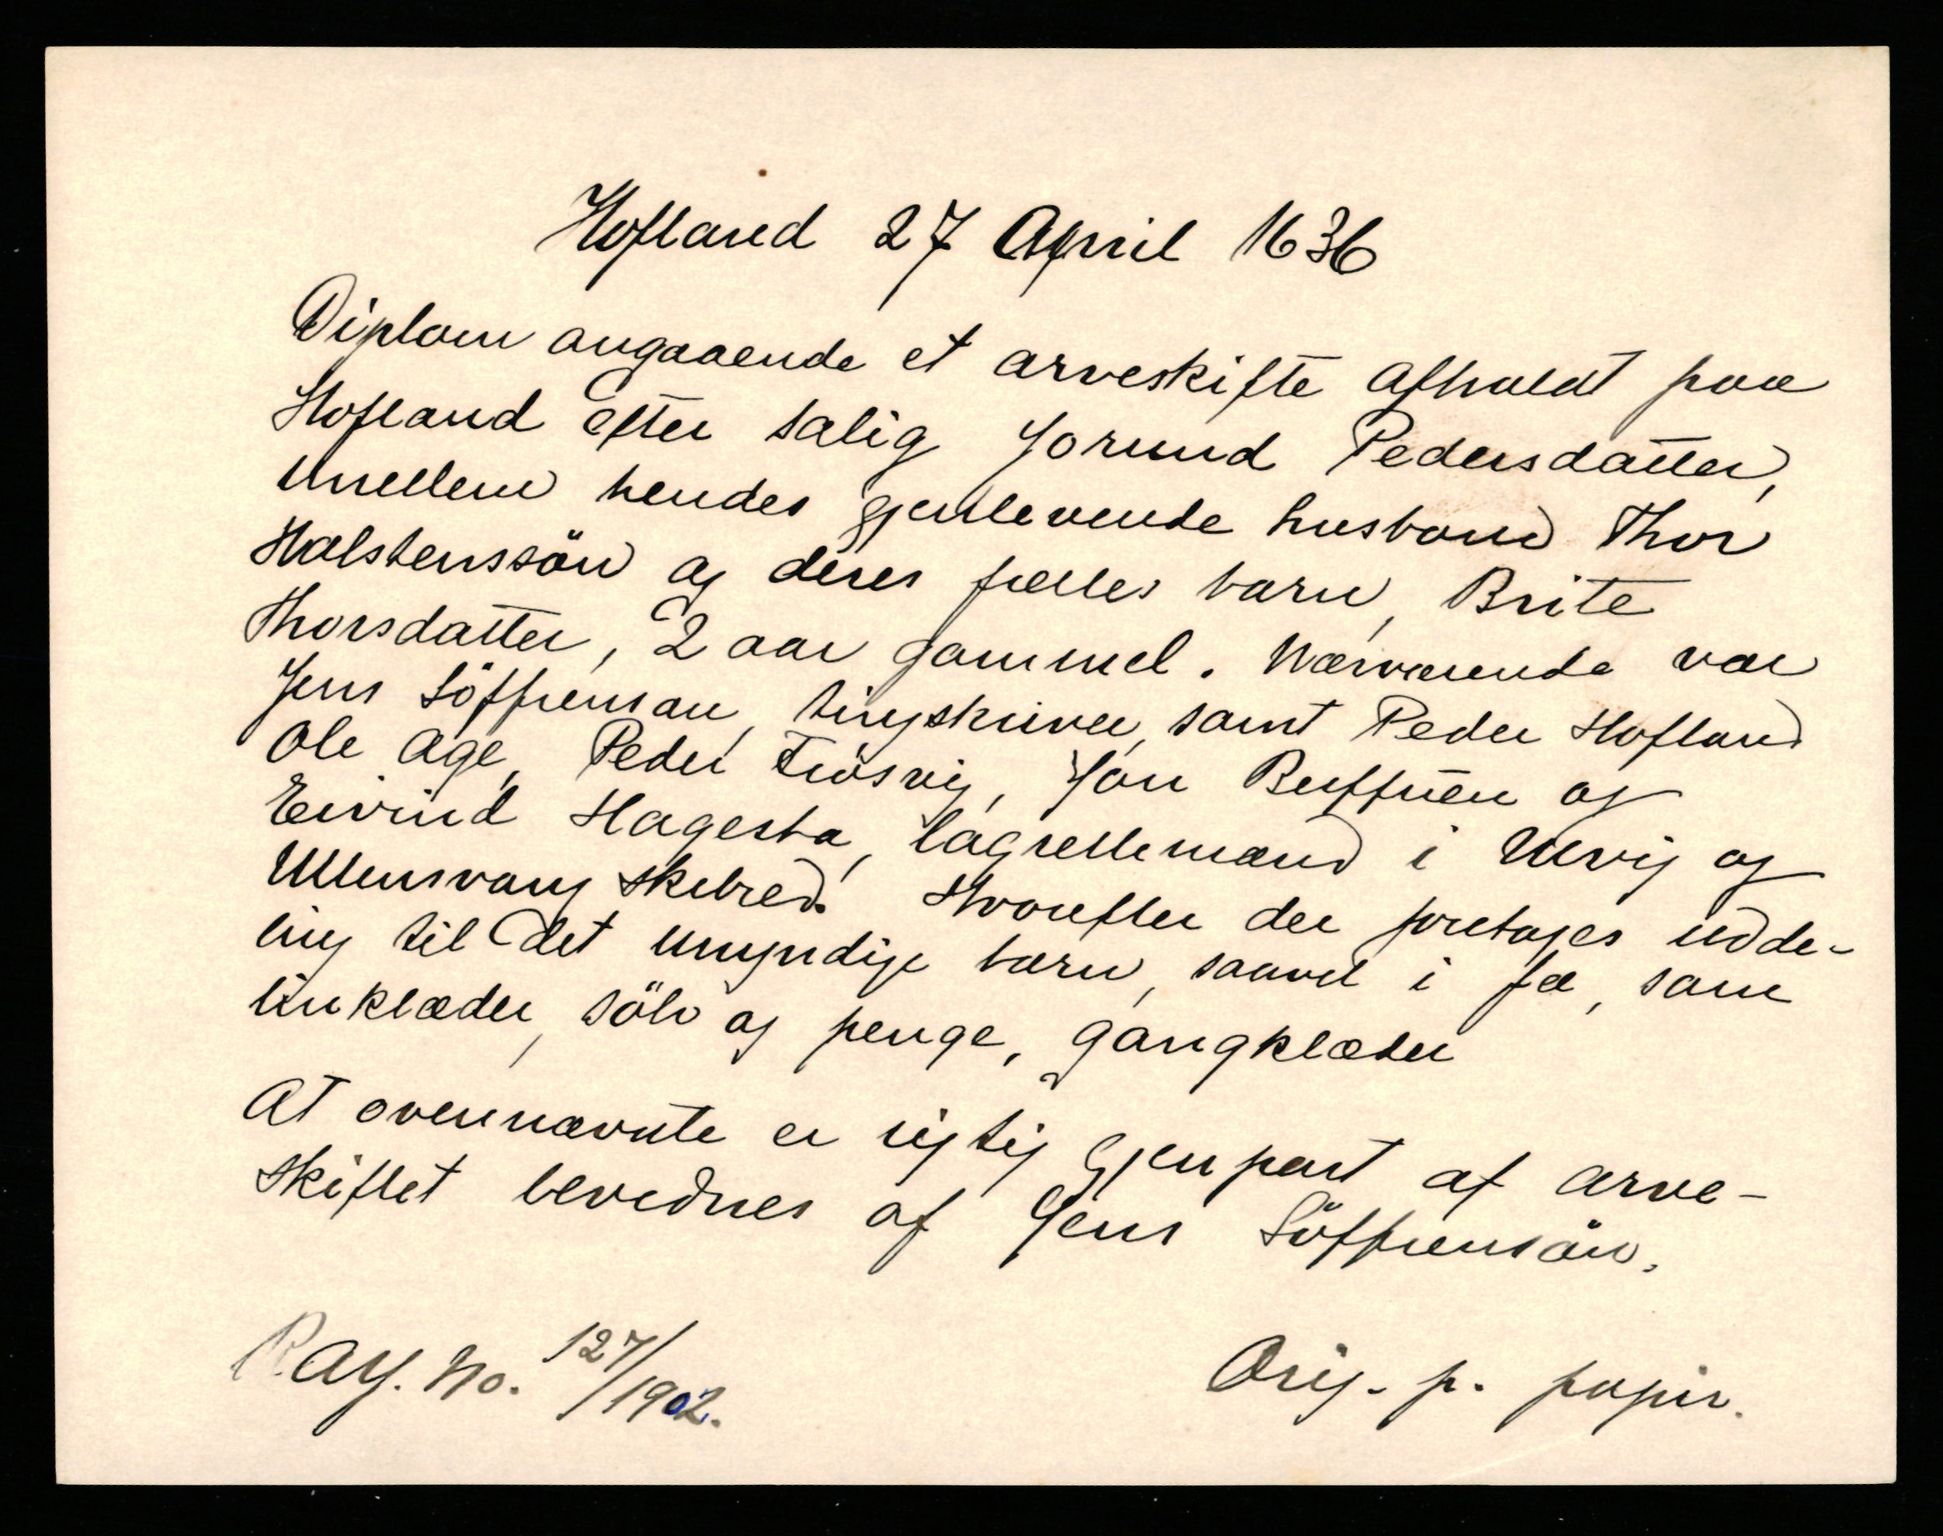 Hofland 27 April 1636
Diplom angaaende et arveskifte afholdt paa
Hofland efter salig Jorund Pedersdatter,
imellem hendes gjenlevende husbond Thor
Halstenssön og deres fælles barn, Brite
Thorsdatter, 2 aar gammel. Nærværende var
Jens Söffrensön, tingskriver, samt Peder Hofland
Ole Age, Peder Frösvig, Jon Buffuen og
Eivind Hagesta, lagrettemænd i Ulvig og
Ullensvang skibred. Hvorefter der foretages udde-
ling til det umyndige barn, saavel i fæ, som
linklæder, sölv og penge, gangklæder
At ovennævnte er rigtig gjenpart af arve-
skiftet bevidnes af Jens Söffrensön.
R.ay. No. 127/1902.
Orig. p. papir.